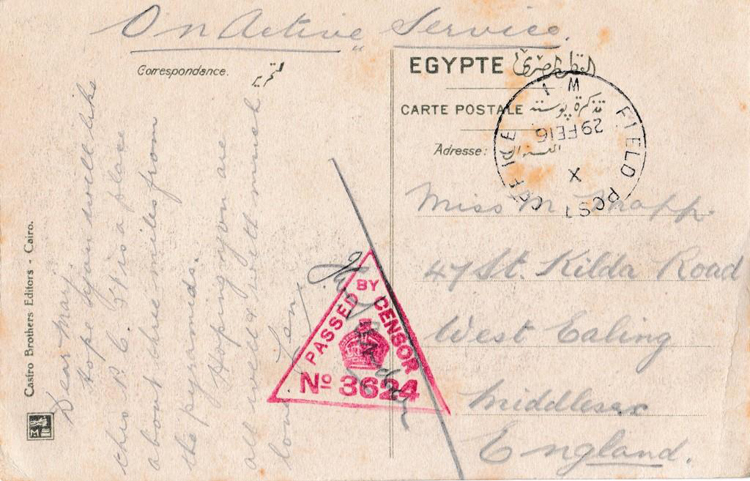 On Active Service.
Correspondance.
EGYPTE
CARTE POSTALE
Adresse:
تذكرة بوسته
FIELD POST OFFICE
X
29 FE 16
Dear May
Hope you will like
this P.C. It is a place
about three miles from
the pyramids.
Hoping you are
all well & with much
love Len.
Miss M.
47 St. Kilda Road
West Ealing
Middlesex
England.
PASSED BY CENSOR
No 3624
Castro Brothers Editors - Cairo.